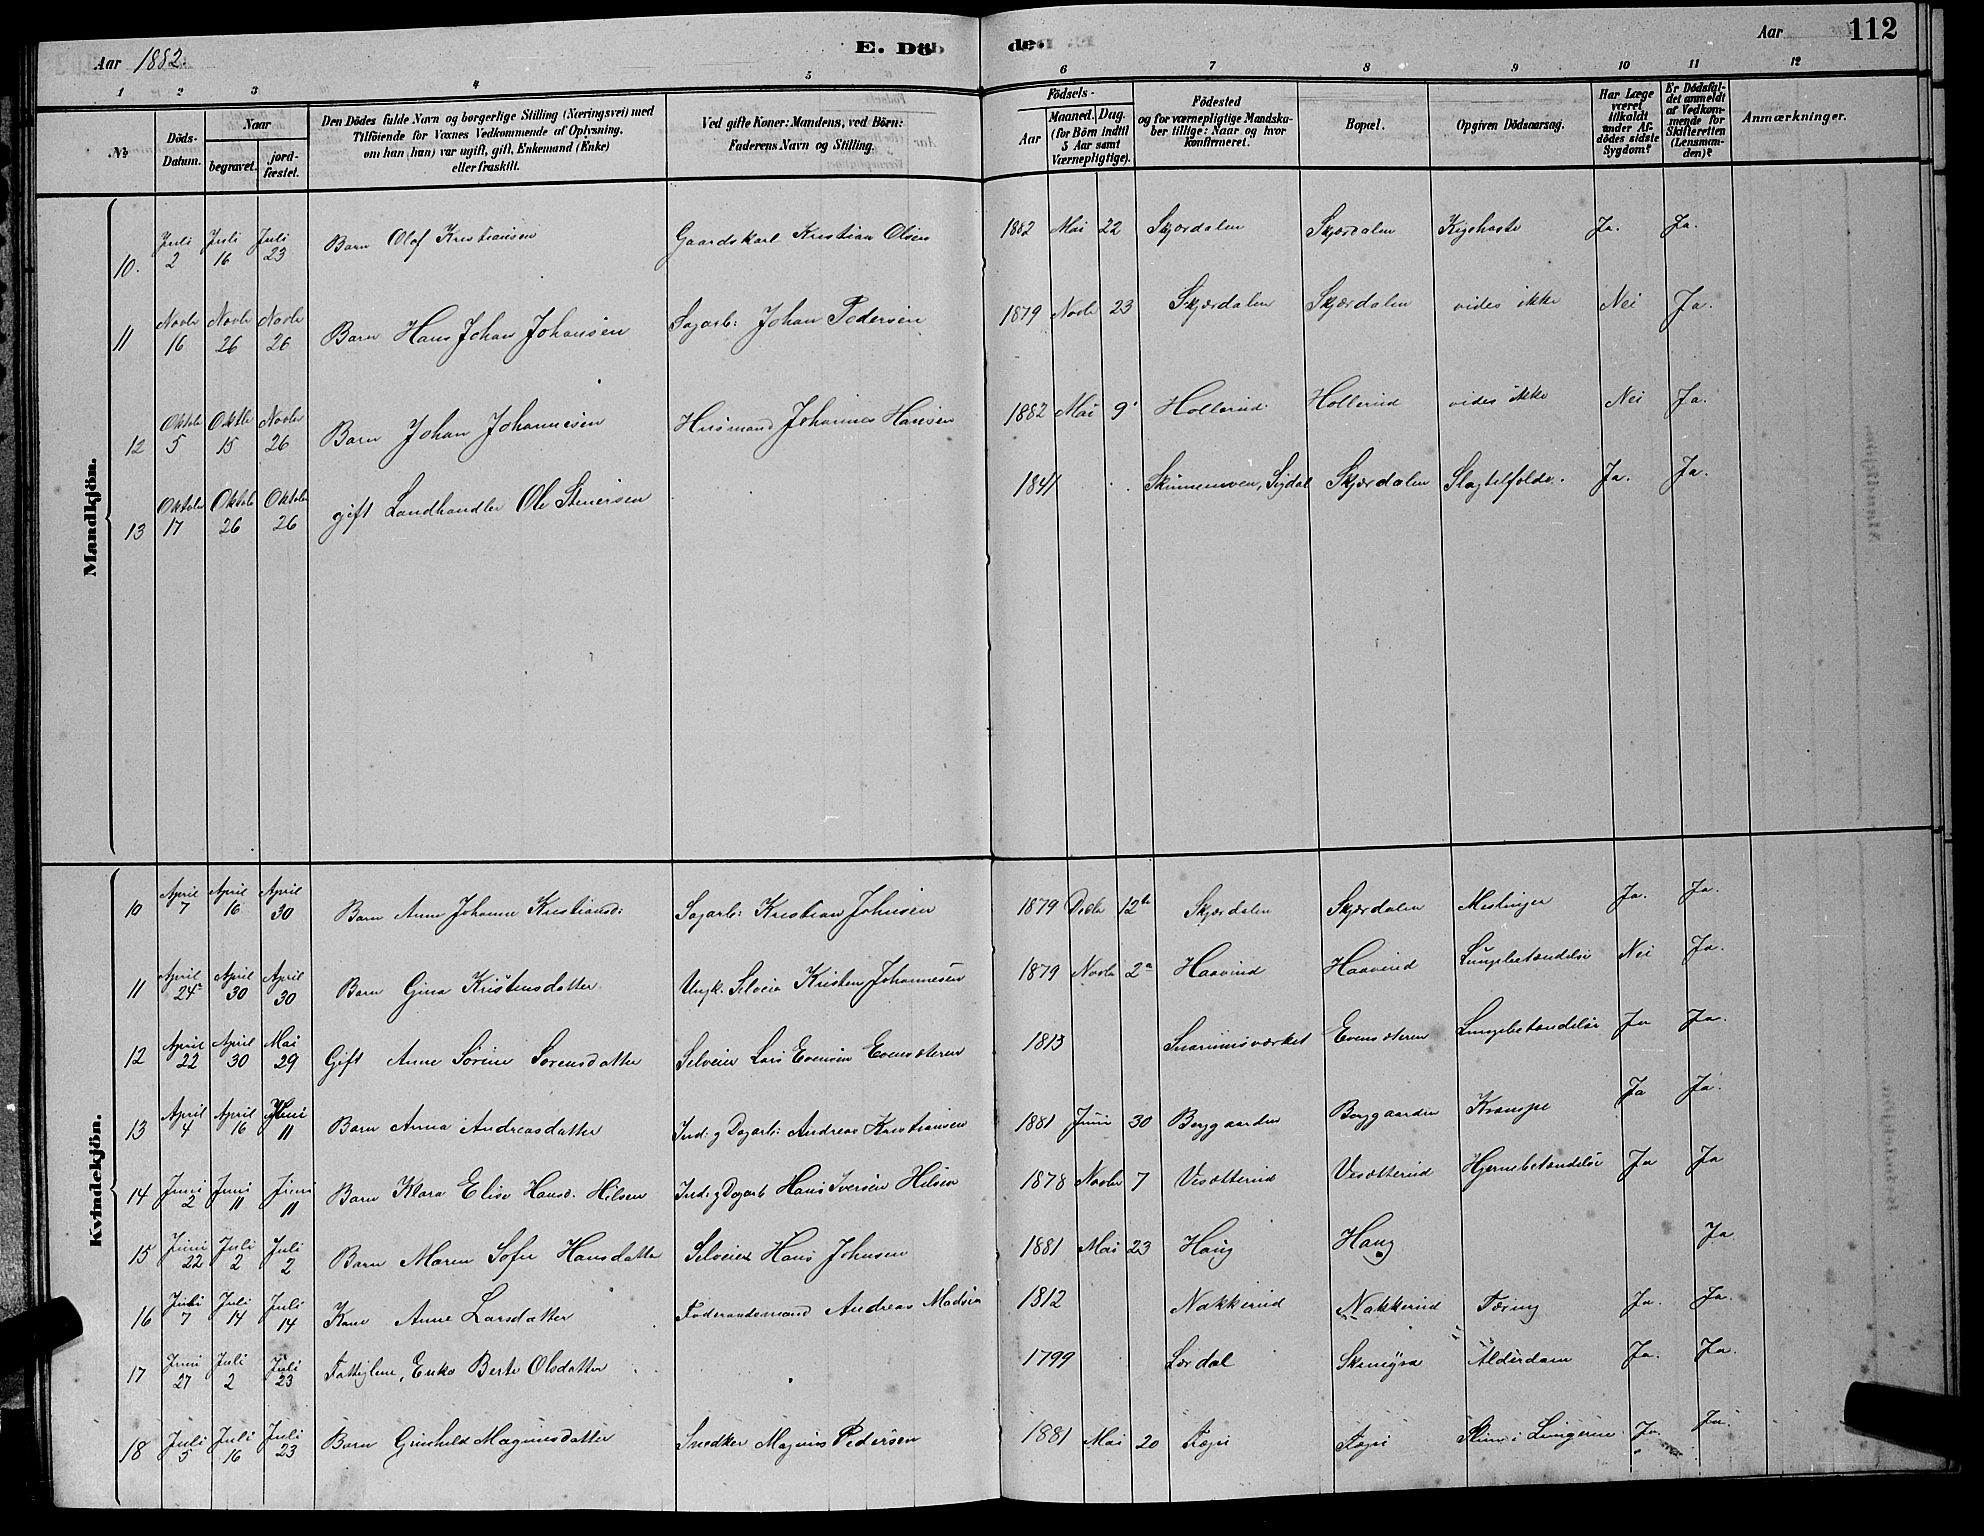 Aar 1882.
E. Döde.
Aar
112
1 2 3 4 5 6 7 8 9 10 11 12
No.
Döds-Datum.
Naar
begravet.
jordfæstet.
Den Dödes fulde Navn og borgerlige Stilling (Næringsvei) med
Tilföiende for Voxnes Vedkommende af Oplysning,
om han (hun) var ugift, gift, Enkemand (Enke)
eller fraskilt.
Ved gifte Koner: Mandens, ved Börn:
Faderens Navn og Stilling.
Födsels-
Aar
Maaned. Dag.
(for Börn indtil
5 Aar samt
Værnepligtige).
Födested
og for værnepligtige Mandska-
ber tillige: Naar og hvor
konfirmeret.
Bopæl.
Opgiven Dödsaarsag.
Har Læge
været
tilkaldt
under Af-
dödes sidste
Sygdom?
Er Dödsfal-
det anmeldt
af Vedkom-
mende for
Skifteretten
(Lensman-
den)?
Anmærkninger.
Mandkjön.
10. Juli 2 Juli 16 Juli 23 Barn Olof Kristiansen Gaardskarl Kristian Olsen 1882 Mai 22 Skjærdalen Skjærdalen Kighoste Ja. Ja.
11 Novbr 16 Novbr 26 Novbr 26 Barn Hans Johan Johansen Sagarb: Johan Pedersen 1879 Novbr 23 Skjærdalen Skjærdalen vides ikke Nei Ja.
12 Oktober 5 Oktbr 15 Novbr 26 Barn Johan Johannesen Husmand Johannes Hansen 1882 Mai 9 Hollerud Hollerud vides ikke Nei Ja.
13 Oktober 17 Oktober 26 Oktober 26 gift Landhandler Ole Steensen 1841 Sigdal Skjærdalen Ja. Ja.
Kvindekjön.
10 April 7 April 16 April 30 Barn Anne Johanne Kristiansd: Sagarb: Kristian Johnsen 1879 Decbr 12te Skjærdalen Skjærdalen Meslinger Ja. Ja.
11 April 24 April 30 April 30 Barn Gina Kristensdatter Ungk. Selveier Kristen Johannesen 1879 Novbr 2 Haavind Haavind Lungebetændelse Nei Ja.
12 April 22 April 30 Mai 29 Gift Anne Sörine Sörensdatter Selveier Lars Evensen Evensæteren 1813 Snarumsværket Evensæteren Lungebetændelse Ja Ja.
13 April 4 April 16 Juni 11 Barn Anna Andreasdatter Ind: g Dagarb: Andreas Kristiansen 1881 Juni 30 Berggaarden Berggaarden Krampe Ja Ja.
14 Juni 2 Juni 11 Juni 11 Barn Klara Elise Hansd: Hilsen Ind: g Dagarb Hans Iversen Hilsen 1878 Novbr 7 Vesætterud Vesætterud Hjernebetændelse Ja Ja
15 Juni 22 Juli 2 Juli 2 Barn Maren Sofie Hansdatter Selveier Hans Johnsen 1881 Mai 23 Haug Haug Ja
16 Juli 7 Juli 14 Juli 14 Kone Anne Larsdatter Föderaadsmand Andreas Madsen 1812 Nakkerud Nakkerud Tæring Ja. Ja.
17 Juni 27 Juli 2 Juli 23 Fattiglem, Enke Berte Olsdatter 1799 Lærdal Alderdom Ja. Ja.
18 Juli 5 Juli 16 Juli 23 Barn Grinhild Magnusdatter Snedker Magnus Pedersen 1881 Mai 20 Slim i Lungerne Ja. Ja.